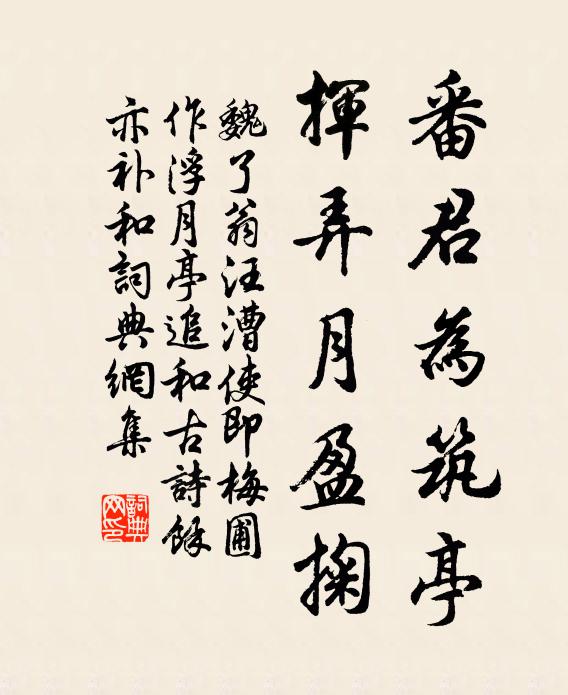 番君為筑亭
揮弄月盈掬
魏了翁汪漕使即梅圃
作浮月亭追和古詩餘
亦补和詞典網集
詞典網印